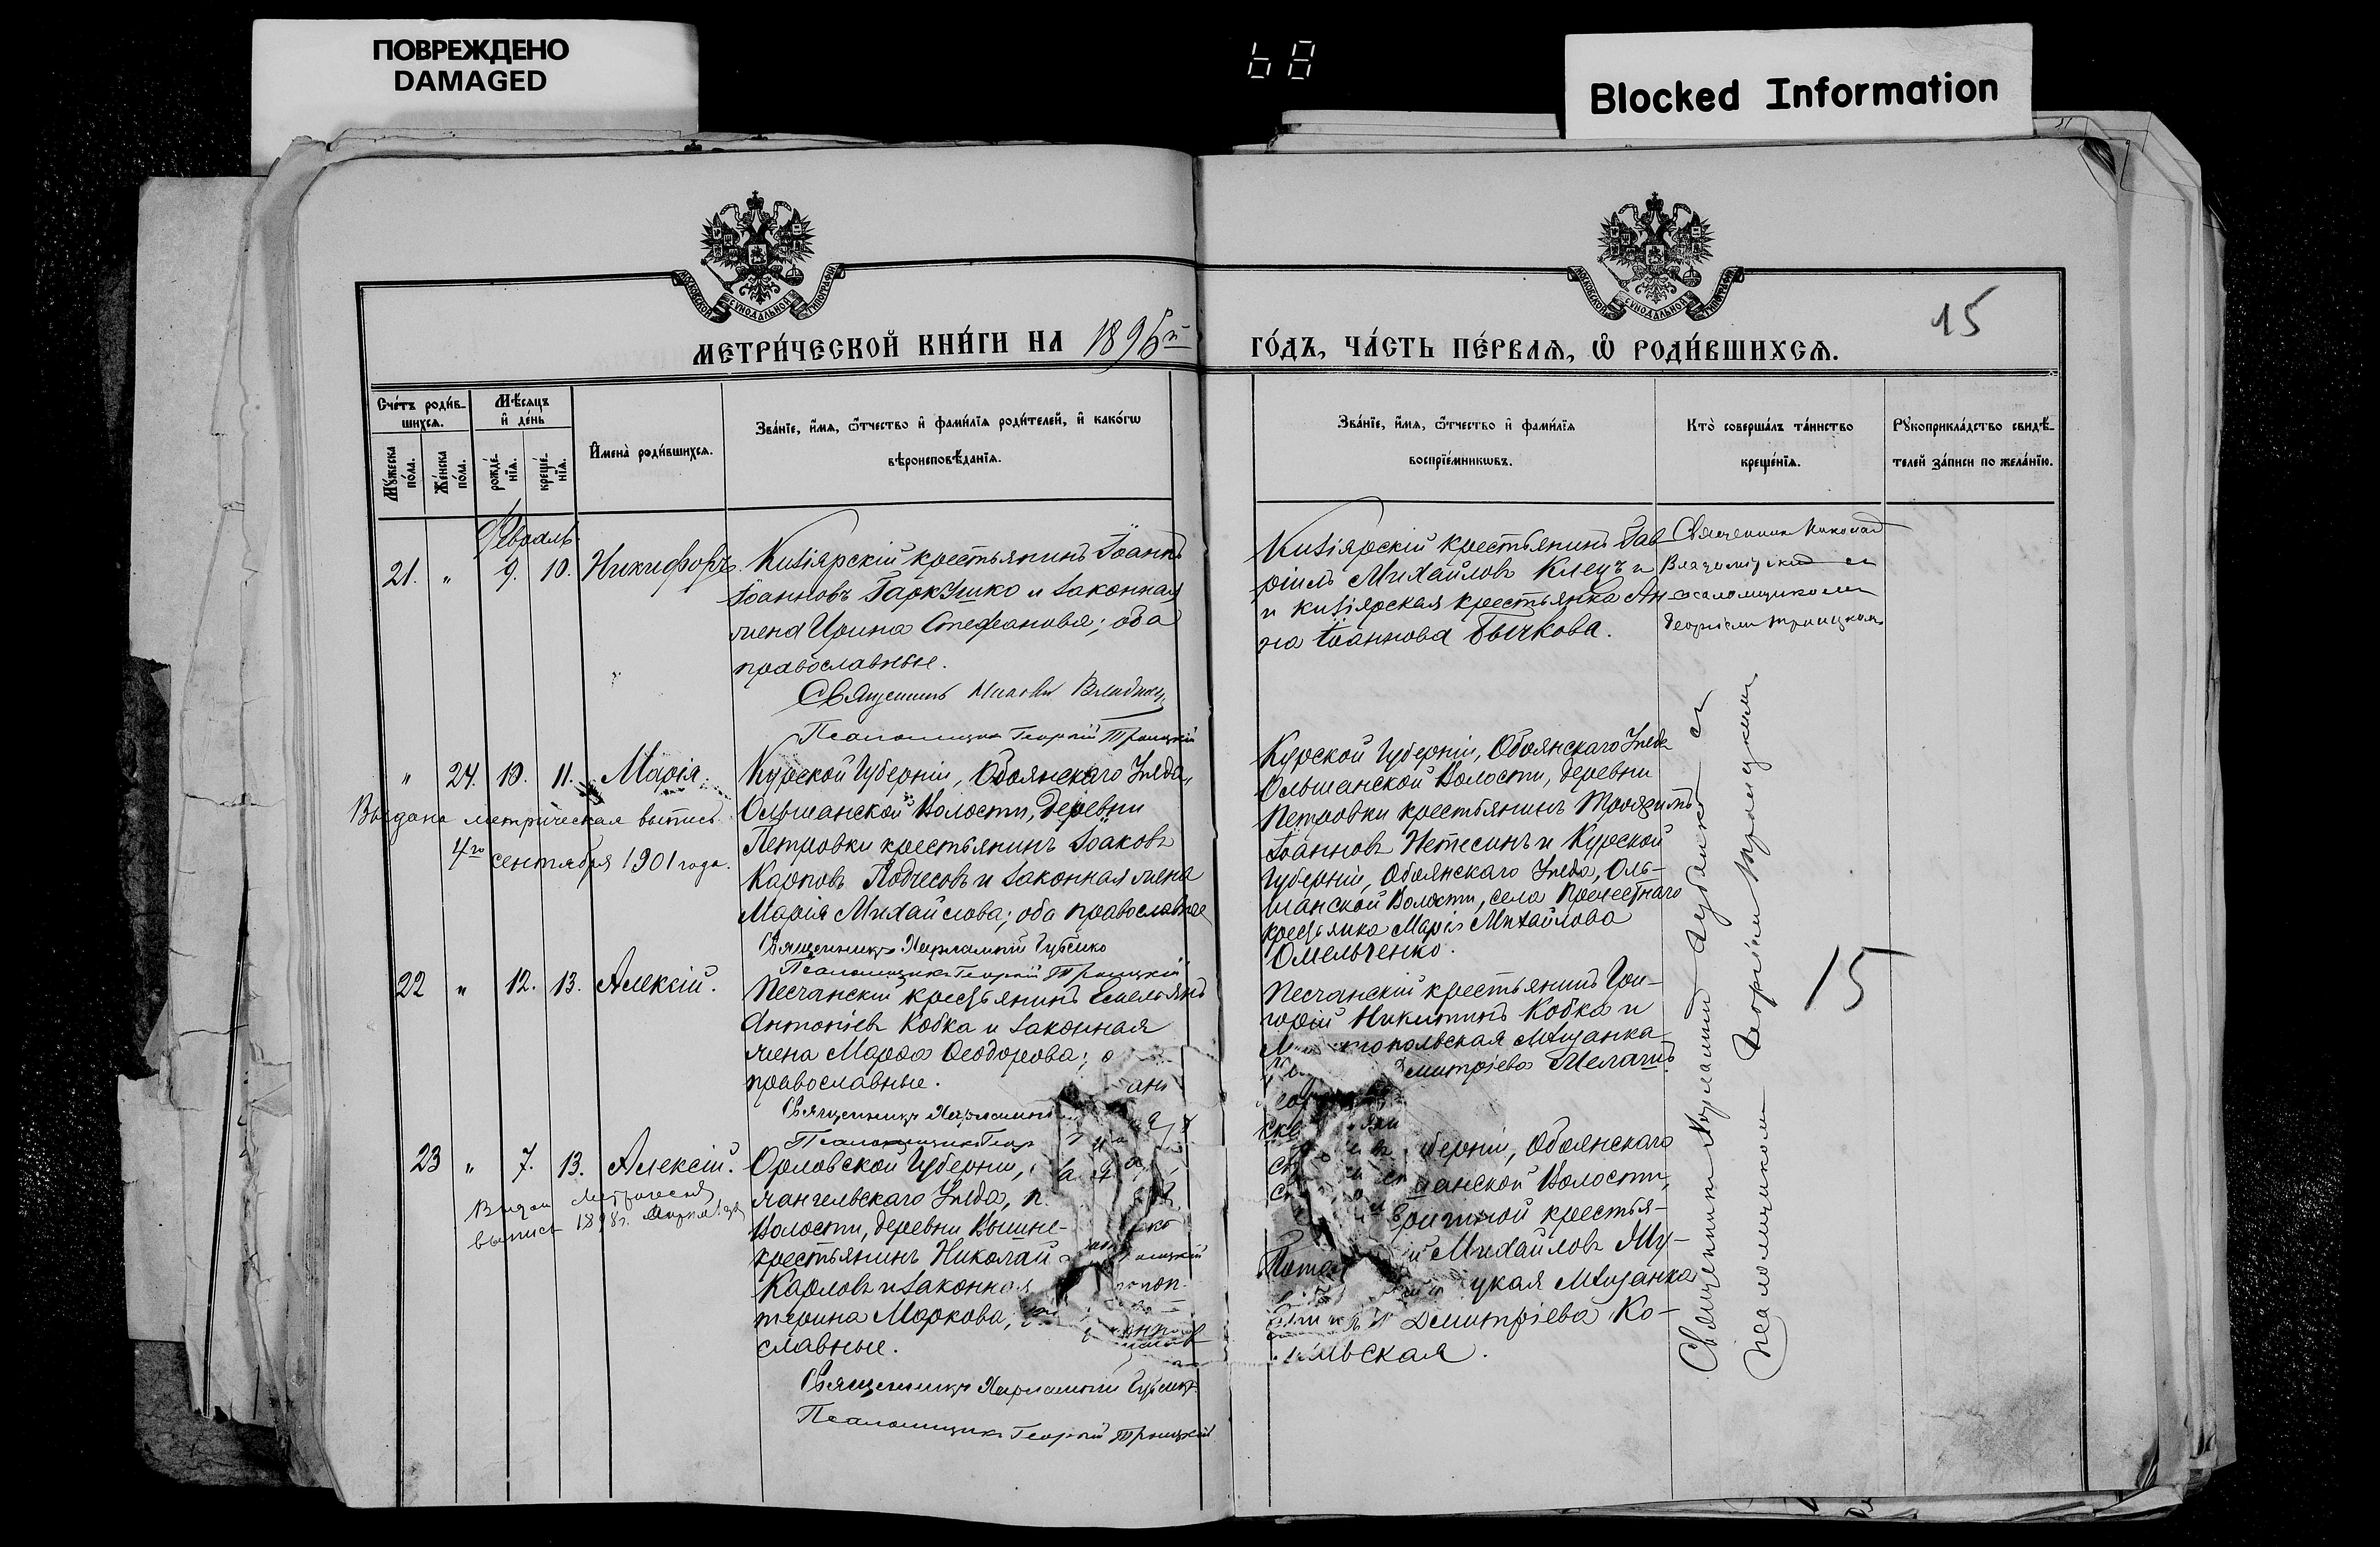 ПОВРЕЖДЕНО
DAMAGED
68
Blocked Information
МОСКОВСКОЙ СѴНОДАЛЬНОЙ ТИПОГРАФІИ
МОСКОВСКОЙ СѴНОДАЛЬНОЙ ТИПОГРАФІИ
15
МЕТРИ́ЧЕСКОЙ КНИ́ГИ НА 1896й
ГО́ДЪ, ЧА́СТЬ ПЕ́РВАѦ, Ѡ҆ РОДИ́ВШИХСѦ.
Сче́тъ роди́в-
шихсѧ.
Мꙋ́жеска по́ла.
Же́нска по́ла.
Мѣ́сѧцъ
и҆ де́нь
рожде́-
нїѧ.
креще́-
нїѧ.
И҆мена̀ роди́вшихсѧ.
Зва́нїе, и҆́мѧ, ѻ҆́тчество и҆ фами́лїѧ роди́телей, и҆ како́гѡ
вѣроисповѣ́данїѧ.
Зва́нїе, и҆́мѧ, ѻ҆́тчество и҆ фами́лїѧ
воспрїе́мникѡвъ.
Кто̀ соверша́лъ та́инство
креще́нїѧ.
Рꙋкоприкла́дство свидѣ́-
телей за́писи по жела́нїю.
Февраль
21. " 9. 10. Никифоръ.
Кизіярскій крестьянинъ Іоаннъ
Іоанновъ Гаркушко и законная
жена Ирина Стефановва; оба
православные.
Священникъ Николай
Псаломщикъ Георгій Троицкій
Кизіярскій крестьянинъ Гав
ріилъ Михайловъ Клецъ и
и кизіярская крестьянка Ан-
на Іоаннова Бычкова.
Священникъ Николай
Владимірскій съ
псаломщикомъ
Георгіемъ Троицкимъ
" 24. 10. 11. Марія.
Выдана метрическая выпись
4го сентября 1901 года.
Курской Губерніи, Обоянскаго Уѣзда,
Ольшанской Волости, деревни
Петровки крестьянинъ Іаковъ
Карповъ Подчесовъ и законная жена
Марія Михайлова; оба православные
Священникъ Харлампій Губенко
Псаломщикъ Георгій Троицкій
Курской Губерніи, Обоянскаго Уѣзда
Ольшанской Волости, деревни
Петровки крестьянинъ
Іоанновъ Нетесинъ и Курской
Губерніи, Обоянскаго Уѣзда, Оль-
шанской Волости, села Пречестнаго
крестьянка Марія Михайлова
Омельченко.
22 " 12. 13. Алексій.
Песчанскій крестьянинъ Емельянъ
Антоніевъ Кобка и законная
жена Марѳа Ѳеодорова;
православные.
Священникъ Харлампій
Псаломщикъ Геор
Песчанскій крестьянинъ Гри-
горій Никитинъ Кобка и
топольская мѣщанка
Димитріева
23 " 7. 13. Алексій.
Выдан метрическая
выпись 1898г.
Орловской Губерніи,
хангельскаго Уѣзда,
Волости, деревни Вышне-
крестьянинъ Николай
Карповъ и законная
терина Маркова,
славные.
Священникъ Харлампій Губенко
Псаломщикъ Георгій Троицкій
берніи, Обоянскаго
шанской Волости,
крестья-
й Михайловъ Му-
цкая мѣщанка
Димитріева Ко-
льская.
Священникъ Харлампій Губенко съ
Псаломщикомъ Георгіемъ Троицкимъ
15